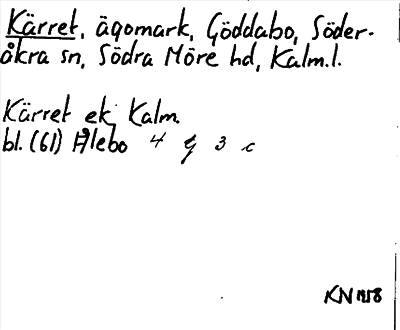 Kärret, ägomark, Göddabo, Söder-
åkra sn, Södra Möre hd, Kalm.l.
Kärret ek, Kalm.
bl. (61) Ålebo 4 g 3 c
KN 1958